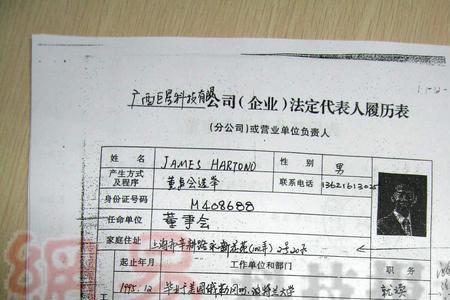 广西巨星科技有限公司(企业)法定代表人履历表
(分公司)或营业单位负责人
姓名 JAMES HARTONO 性别 男
产生方式及程序 董事会选举 联系电话 13621613025
身份证号码 M408688
任命单位 董事会
家庭住址 上海市
起止年月 工作单位和部门 职务
1995.12 毕业于美国俄勒冈州 波特兰大学